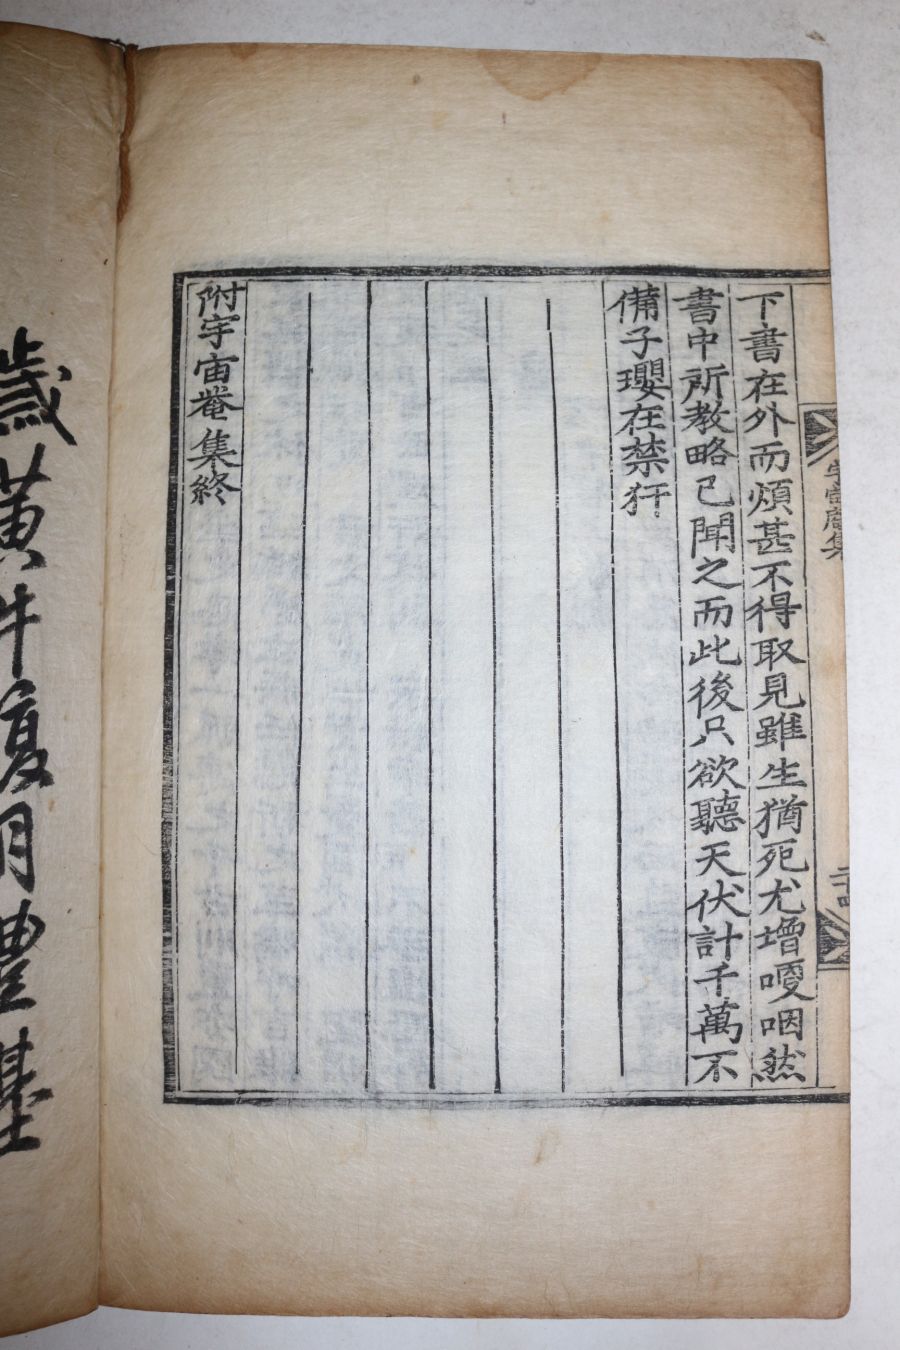 宇宙菴集
下書在外而煩甚不得取見雖生猶死尤增嗄咽然
書中所教略已聞之而此後只欲聽天伏計千萬不
備子瓔在禁犴
附宇宙菴集終
歲黃牛復月豊基